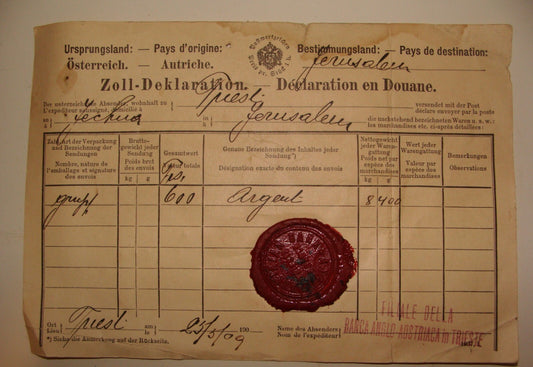 Ursprungsland: — Pays d'origine:
Österreich. — Autriche.
Bestimmungsland: — Pays de destination:
Jerusalem
Zoll-Deklaration. — Déclaration en Douane.
Der unterzeichnete Absender, wohnhaft zu
L'expéditeur soussigné, domicilié à
Triest
versendet mit der Post
déclare envoyer par la poste
Jerusalem
die nachstehend bezeichneten Waren u. s. w.:
les marchandises etc. ci-après détaillées:
Zahl, Art der Verpackung und Bezeichnung der Sendungen
Nombre, nature de l'emballage et signature des envois
Brutto-gewicht jeder Sendung
Poids brut des envois
kg g
Gesamtwert
Valeur totale
Genaue Bezeichnung des Inhaltes jeder Sendung*)
Désignation exacte du contenu des envois
Nettogewicht jeder Waren-gattung
Poids net par espèce des marchandises
kg g
Wert jeder Warengattung
Valeur par espèce des marchandises
Bemerkungen
Observations
600
Argent
8 400
Ort
Lieu
Triest
am
le
25/5/09
190
Name des Absenders
Nom de l'expéditeur
FILIALE DELLA
BANCA ANGLO AUSTRIACA in TRIESTE
*) Siehe die Anmerkung auf der Rückseite.